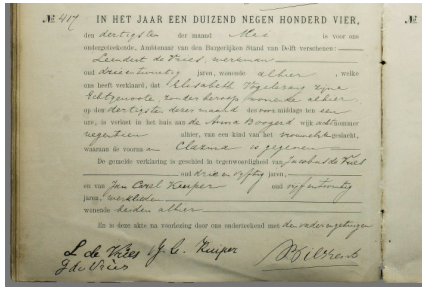 № 407 IN HET JAAR EEN DUIZEND NEGEN HONDERD VIER, №
den dertigsten der maand Mei is voor ons
ondergeteekende, Ambtenaar van den Burgerlijken Stand van Delft verschenen:
Leendert de Vries, werkman
oud drieentwintig jaren, wonende alhier, welke
ons heeft verklaard, dat Elisabeth Vogelezang zijne
Echtgenoote zonder beroep wonende alhier
op den dertigsten dezer maand des voormiddags ten een
ure, is verlost in het huis aan de Anna Boogerd wijk nummer
negentien alhier, van een kind van het vrouwelijk geslacht,
waaraan de voornaam Clasina is gegeven
De gemelde verklaring is geschied in tegenwoordigheid van Jacobus de Vries
oud drie en vijftig jaren,
en van Jan Carel Kuiper oud vijfentwintig
jaren, werklieden
wonende beiden alhier
En is deze akte na voorlezing door ons onderteekend met den vader en getuigen
L de Vries J. C. Kuiper
J de Vries